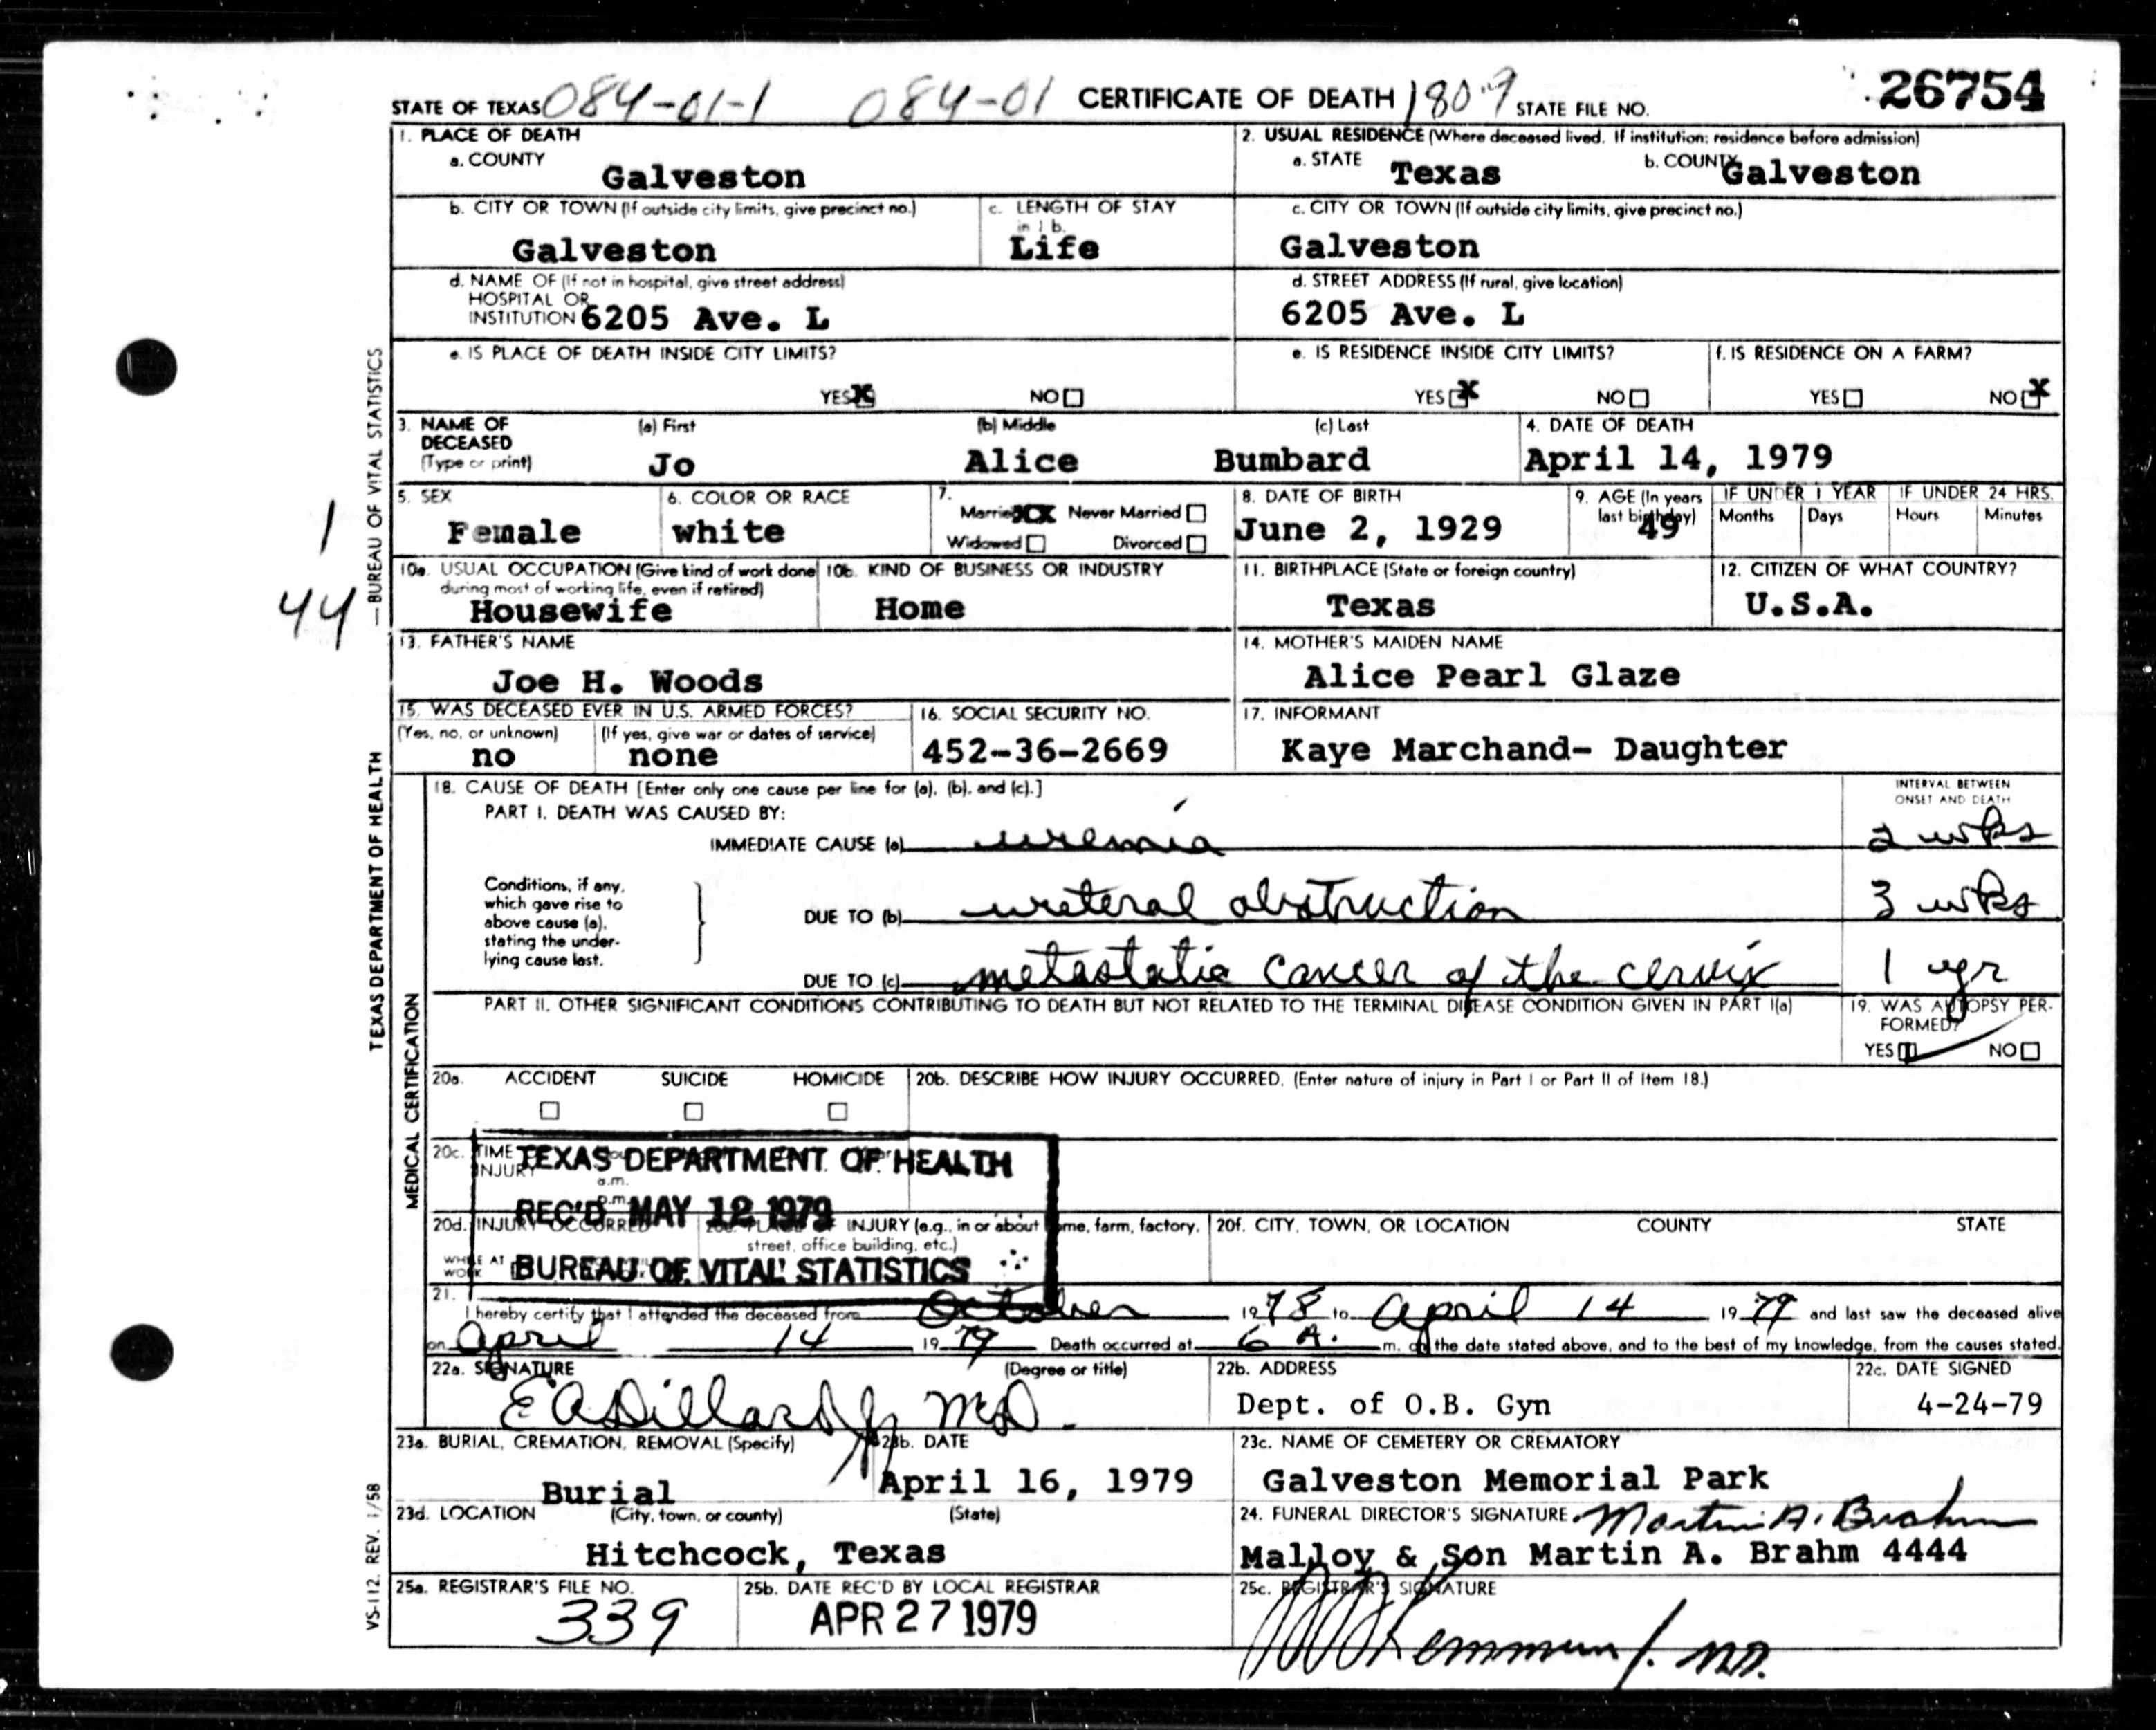 STATE OF TEXAS 084-01-1 084-01 CERTIFICATE OF DEATH 1809 STATE FILE NO. 26754
1. PLACE OF DEATH
a. COUNTY
Galveston
2. USUAL RESIDENCE (Where deceased lived. If institution: residence before admission)
a. STATE Texas b. COUNTY Galveston
b. CITY OR TOWN (If outside city limits, give precinct no.)
Galveston
c. LENGTH OF STAY
in 1 b.
Life
c. CITY OR TOWN (If outside city limits, give precinct no.)
Galveston
d. NAME OF (If not in hospital, give street address)
HOSPITAL OR
INSTITUTION 6205 Ave. L
d. STREET ADDRESS (If rural, give location)
6205 Ave. L
e. IS PLACE OF DEATH INSIDE CITY LIMITS?
YES X NO
e. IS RESIDENCE INSIDE CITY LIMITS?
YES X NO
f. IS RESIDENCE ON A FARM?
YES NO X
3. NAME OF
DECEASED
(Type or print)
(a) First (b) Middle (c) Last
Jo Alice Bumbard
4. DATE OF DEATH
April 14, 1979
5. SEX
Female
6. COLOR OR RACE
white
7.
Married XX Never Married
Widowed Divorced
8. DATE OF BIRTH
June 2, 1929
9. AGE (In years
last birthday)
49
IF UNDER 1 YEAR
Months Days
IF UNDER 24 HRS.
Hours Minutes
10a. USUAL OCCUPATION (Give kind of work done
during most of working life, even if retired)
Housewife
10b. KIND OF BUSINESS OR INDUSTRY
Home
11. BIRTHPLACE (State or foreign country)
Texas
12. CITIZEN OF WHAT COUNTRY?
U.S.A.
13. FATHER'S NAME
Joe H. Woods
14. MOTHER'S MAIDEN NAME
Alice Pearl Glaze
15. WAS DECEASED EVER IN U.S. ARMED FORCES?
(Yes, no, or unknown) (If yes, give war or dates of service)
no none
16. SOCIAL SECURITY NO.
452-36-2669
17. INFORMANT
Kaye Marchand- Daughter
18. CAUSE OF DEATH [Enter only one cause per line for (a), (b), and (c).]
PART I. DEATH WAS CAUSED BY:
INTERVAL BETWEEN
ONSET AND DEATH
IMMEDIATE CAUSE (a) uremia 2 wks
Conditions, if any,
which gave rise to
above cause (a),
stating the under-
lying cause last.
DUE TO (b) ureteral obstruction 3 wks
DUE TO (c) metastatic cancer of the cervix 1 yr
PART II. OTHER SIGNIFICANT CONDITIONS CONTRIBUTING TO DEATH BUT NOT RELATED TO THE TERMINAL DISEASE CONDITION GIVEN IN PART I(a)
19. WAS AUTOPSY PER-
FORMED?
YES NO
20a. ACCIDENT SUICIDE HOMICIDE
20b. DESCRIBE HOW INJURY OCCURRED. (Enter nature of injury in Part I or Part II of Item 18.)
20c. TIME
INJURY
a.m.
p.m.
TEXAS DEPARTMENT OF HEALTH
REC'D MAY 12 1979
BUREAU OF VITAL STATISTICS
20d. INJURY OCCURRED
WHILE AT
WORK
INJURY (e.g., in or about home, farm, factory,
street, office building, etc.)
20f. CITY, TOWN, OR LOCATION COUNTY STATE
21.
I hereby certify that I attended the deceased from October 1978 to April 14 1979 and last saw the deceased alive
on April 14 1979 Death occurred at 6 A. m. on the date stated above, and to the best of my knowledge, from the causes stated.
22a. SIGNATURE (Degree or title)
E A Dillard Jr MD.
22b. ADDRESS
Dept. of O.B. Gyn
22c. DATE SIGNED
4-24-79
23a. BURIAL, CREMATION, REMOVAL (Specify)
Burial
23b. DATE
April 16, 1979
23c. NAME OF CEMETERY OR CREMATORY
Galveston Memorial Park
23d. LOCATION (City, town, or county) (State)
Hitchcock, Texas
24. FUNERAL DIRECTOR'S SIGNATURE Martin A. Brahm
Malloy & Son Martin A. Brahm 4444
25a. REGISTRAR'S FILE NO.
339
25b. DATE REC'D BY LOCAL REGISTRAR
APR 27 1979
25c. REGISTRAR'S SIGNATURE
BUREAU OF VITAL STATISTICS
TEXAS DEPARTMENT OF HEALTH
MEDICAL CERTIFICATION
VS-112, REV. 1/58
1
44